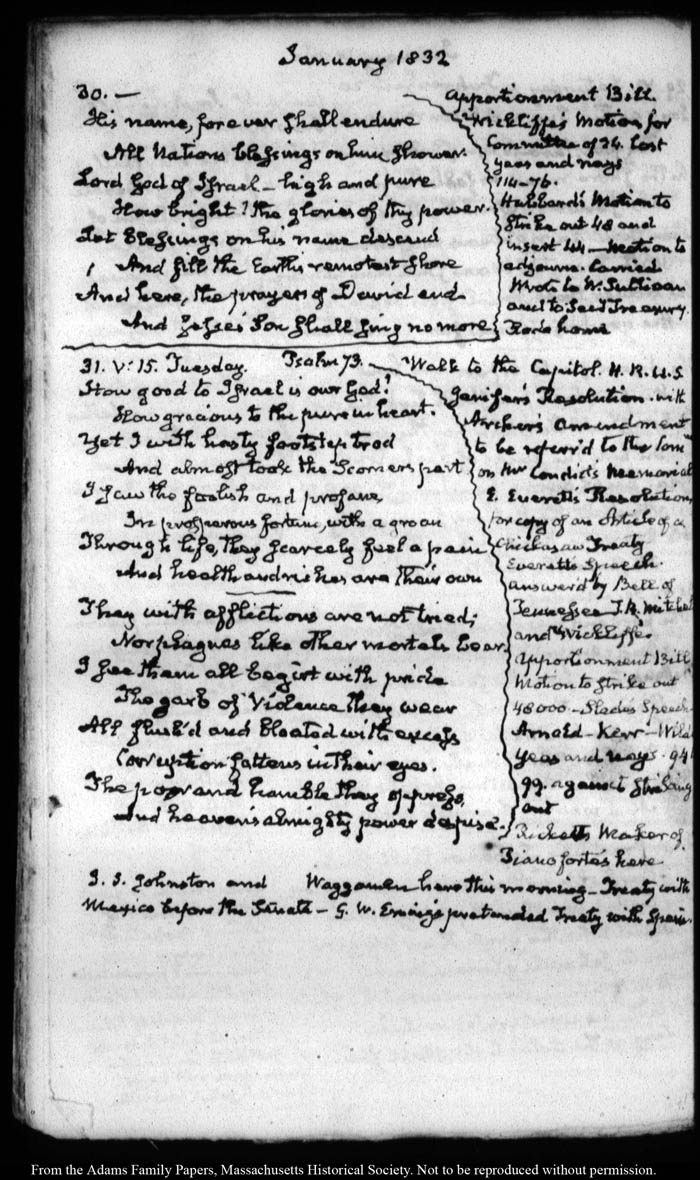 January 1832
30. —
His name, forever shall endure
All Nations blessings on him shower.
Lord God of Israel – high and pure
How bright! the glories of thy power.
Let blessings on his name descend
And fill the Earth's remotest shore
And here, the prayers of David end
And Jesse's Son shall sing no more
Apportionment Bill.
Wickliffe's Motion for
Committee of 24. lost
yeas and nays
114–76.
Hubbard's Motion to
strike out 48 and
insert 44 – Motion to
adjourn. Carried
Wrote to W. Sullivan
and to
Treasury.
Rode home
31. V:15. Tuesday. Psalm 73.
How good to Israel is our God!
How gracious to the pure in heart.
Yet I with hasty footstep trod
And almost took the Scorners part
I saw the foolish and profane,
In prosperous fortune, with a groan
Through life, they scarcely feel a pain
And health and riches are their own
They with afflictions are not tried;
Nor plagues like other mortals bear
I see them all begirt with pride
The garb of Violence they wear
All flush'd and bloated with excess
Corruption fattens in their eyes.
The poor and humble they oppress,
And heaven's almighty power despise.
Walk to the Capitol. H. R. U.S
Jenifer's Resolution. with
Archer's amendment
to be referr'd to the Comm
on Mr Condict's Memorial
E. Everett's Resolution,
for copy of an Article of a
Chickasaw Treaty
Everett's Speech.
answer'd by Bell of
Tennessee J. K. Mitchel
and Wickliffe.
Apportionment Bill
Motion to strike out
48000 – Slade's Speech
Arnold – Kerr – Wild
Yeas and nays. 94
99. against striking
out
Ricketts Maker of
Piano fortes here
J. S. Johnston and Waggaman here this morning – Treaty with
Mexico before the Senate – G. W. Erving's pretended Treaty with Spain.
From the Adams Family Papers, Massachusetts Historical Society. Not to be reproduced without permission.